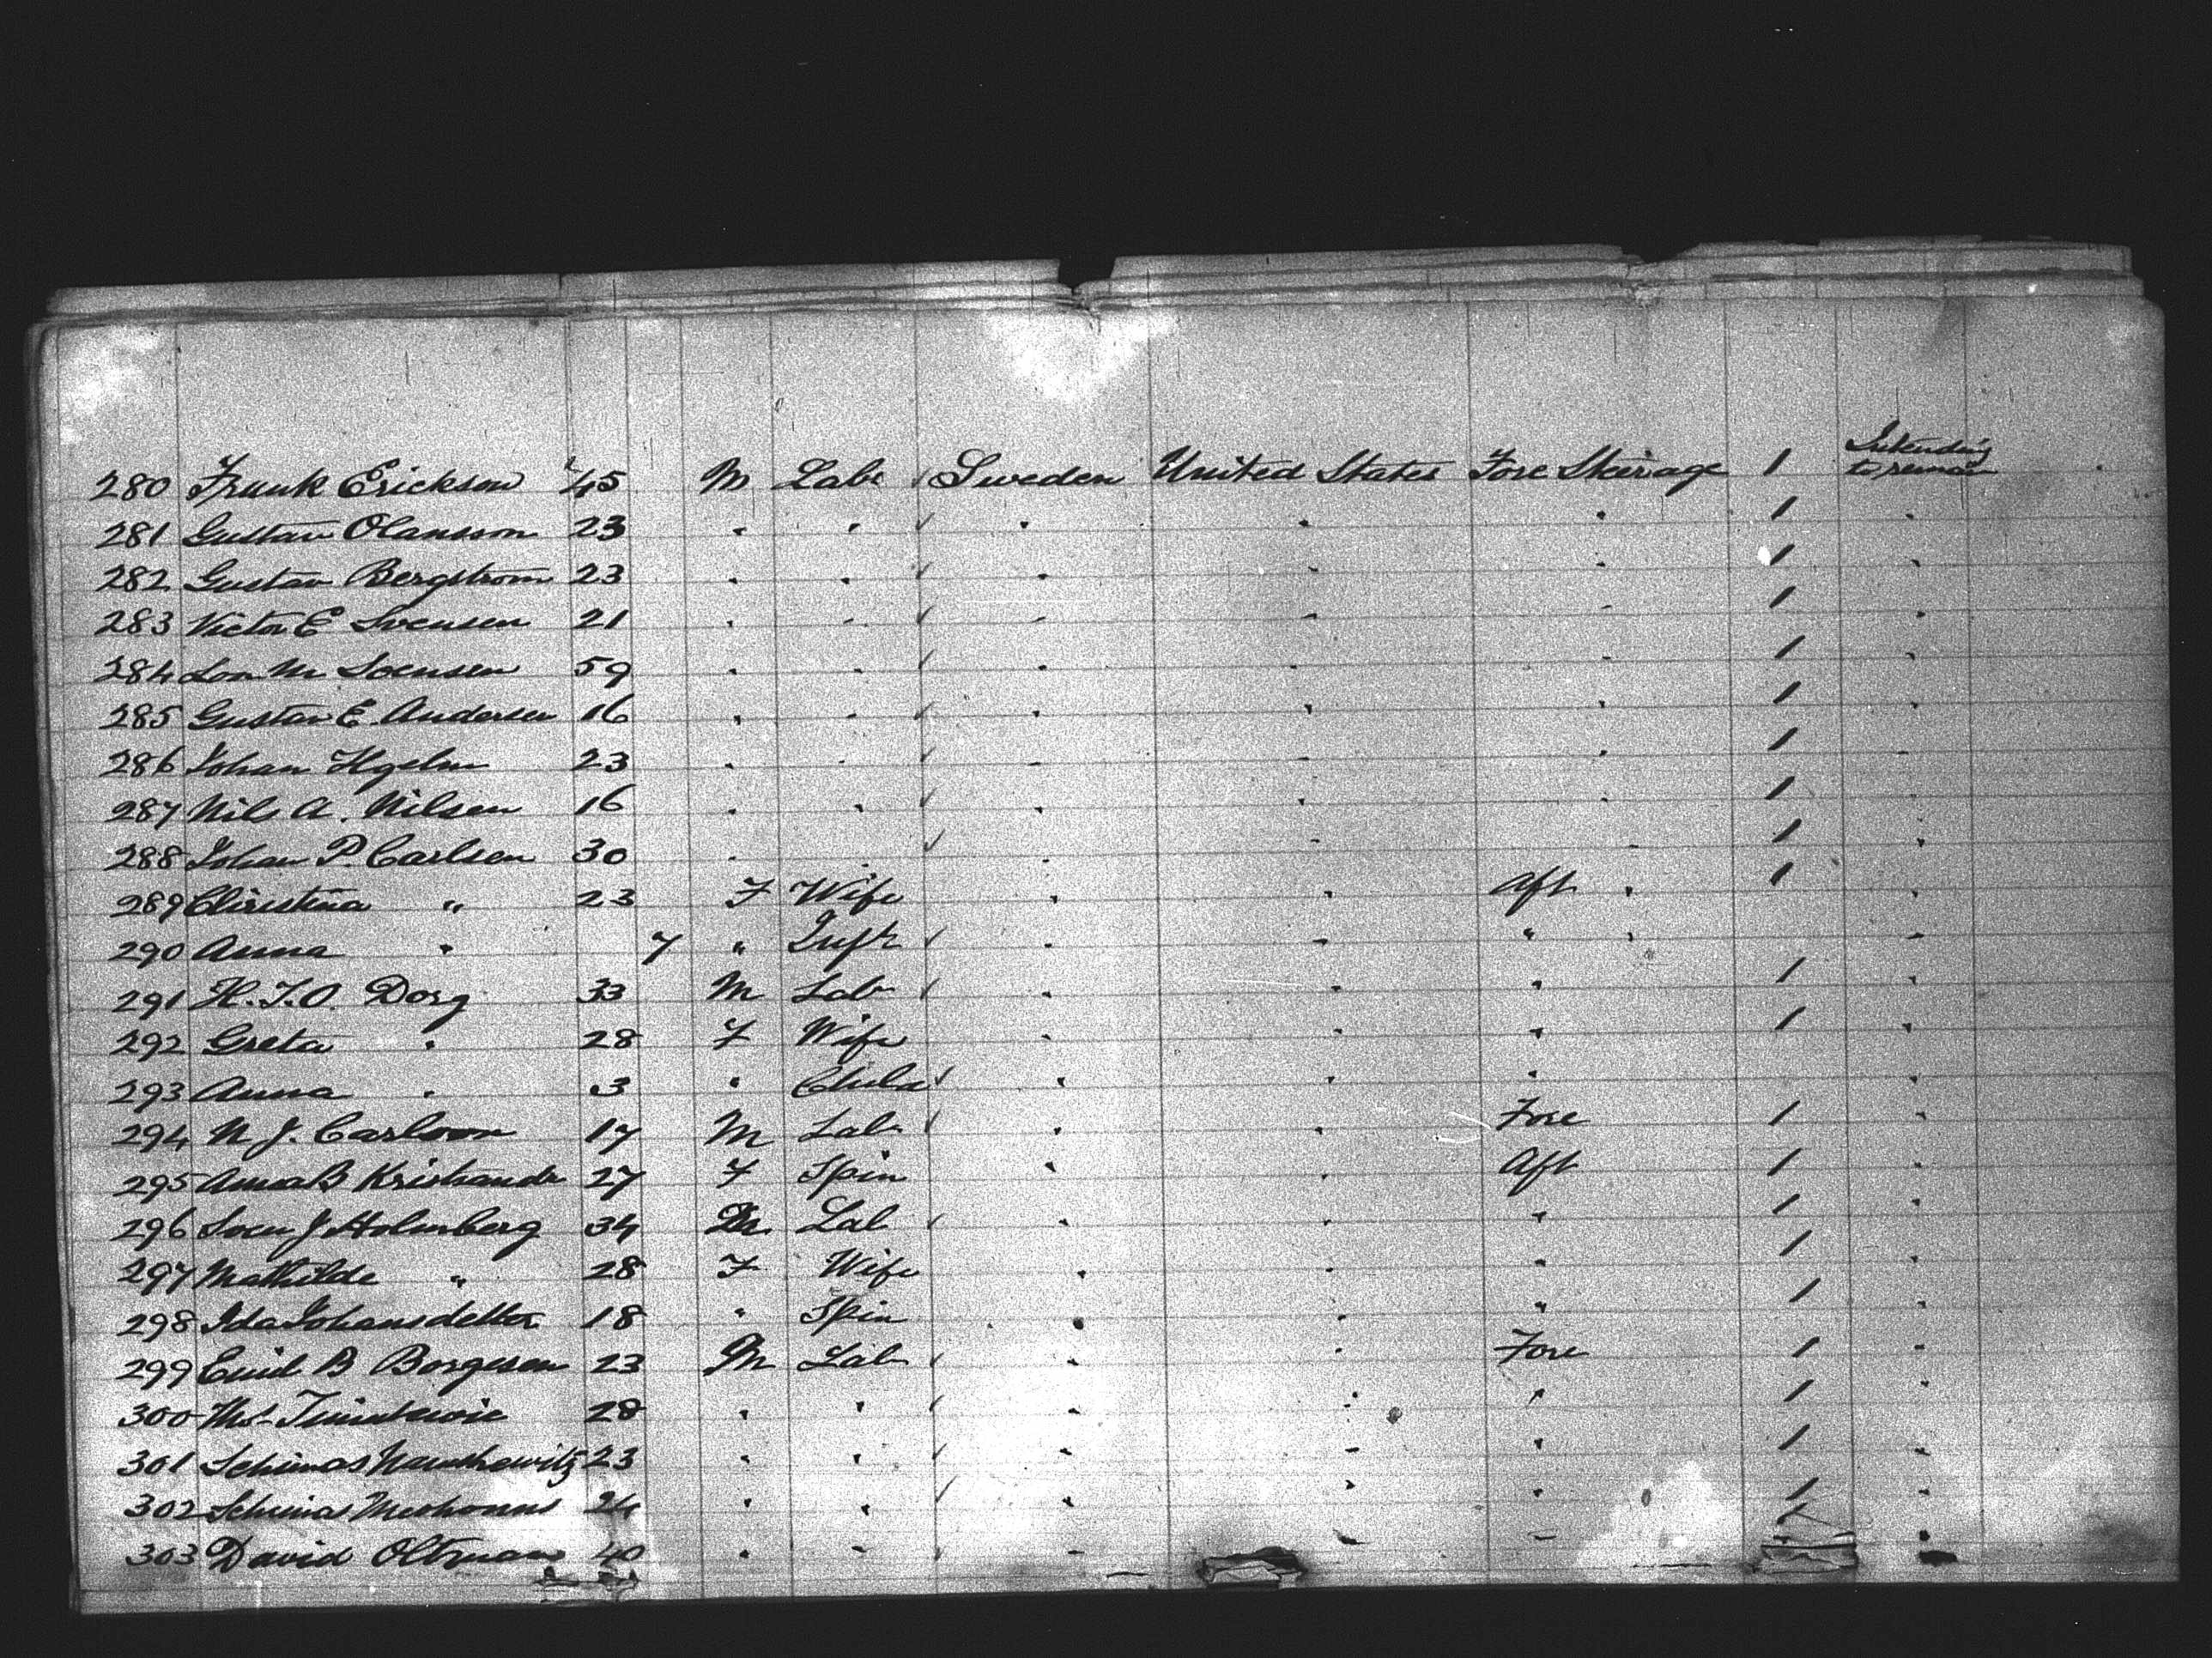 280 Frank Erickson 45 M Labr Sweden United States Fore Steirage 1 Intending to remain
281 Gustav Olansson 23 " " " " " 1 "
282 Gustav Bergstrom 23 " " " " " 1 "
283 Victor E Svensen 21 " " " " " 1 "
284 M Svensen 59 " " " " " 1 "
285 Gustav E. Andersen 16 " " " " " 1 "
286 Johan Hyelm 23 " " " " " 1 "
287 Nils A. Nilsen 16 " " " " " 1 "
288 Johan P. Carlsen 30 " " " " " 1 "
289 Christina " 23 F Wife " " Aft " 1 "
290 Anna " 7 " Inft " " " " "
291 H. J. O. Dorg 33 M Lab " " " 1 "
292 Greta " 28 F Wife " " " 1 "
293 Anna " 3 " Child " " " "
294 N J. Carlson 17 M Lab " " Fore 1 "
295 Anna B 27 F Spin " " Aft 1 "
296 Sven J Holmberg 34 M Lab " " " 1 "
297 Mathilde " 28 F Wife " " " 1 "
298 Ida Johansdetter 18 " Spin " " " 1 "
299 Emil B Borgesen 23 M Lab " " Fore 1 "
300 28 " " " " " 1 "
301 Schimas 23 " " " " " 1 "
302 24 " " " " " 1 "
303 David Oltman 40 " " " " " "